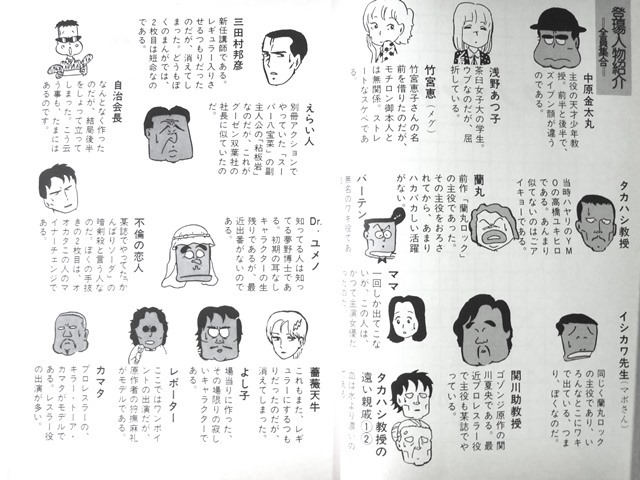 登場人物紹介
―全員集合―
中原金太丸
主役の天才少年教
授。前半と後半で、
ズイブン顔が違う
のである。
浅野あつ子
茶臼女子大の学生。
ウブなのだが、屈
折している。
竹宮恵(メグ)
竹宮恵子さんの名
前を借りたのだが、
モチロン御本人と
は無関係。ストレ
ートなスケベであ
る。
タカハシ教授
当時ハヤリのYM
Oの高橋ユキヒロ
である。あんまり
似てないのはごア
イキョーである。
蘭丸
前作「蘭丸ロック」
の主役であった。
その主役をおろさ
れてから、あまり
ハカバカしい活躍
がない。
バーテン
無名のワキ役であ
ママ
一回しか出てこな
いが、この人は、
かつて主演女優だ
イシカワ先生(マボさん)
同じく蘭丸ロック
の主役であり、い
ろんなとこにワキ
で出ている。つま
り、ぼくなのだ。
関川助教授
ゴゾンジ原作の関
川夏央である。最
近プロレスラー役
で主役も某誌でや
っている。
タカハシ教授の
遠い親戚①②
血は水より濃いの
えらい人
別冊アクションで
やっていた「スー
パー八宝菜」の副
主人公の「粘板岩」
なのだが、これが
グーゼン双葉社の
社長に似ていたの
だ。
三田村邦彦
新任講師である。
レギュラー入りさ
せるつもりだった
のだが、消えてし
まった。どうもぼ
くのまんがでは、
2枚目は短命なの
である。
自治会長
なんとなく作った
のだが、結局後半
をしょって立って
しまった。こう云
う事も、たまには
あるのです。
Dr.ユメノ
知ってる人は知っ
てる夢野博士であ
る。初期の耳なし
キャラクターの生
残りであるが、最
近出番がないので
ある。
不倫の恋人
某誌でやってた「か
んぱりぃーダ」の
暗剣殺と言う人な
のだ。ぼくの手技
きの2枚目は、オ
オカタこの人のマ
イナーチェンジで
ある。
薔薇天牛
これもまた、レギ
ュラーにするつも
りだったのだが、
消えてしまった。
よし子
場当りに作った、
その場限りの寂し
いキャラクターで
ある。
レポーター
ここではワンポイ
ントの出演だが、
原作者の狩撫麻礼
がモデルである。
カマタ
プロレスラーの、
キラー・トーア・
カマタがモデルで
ある。レスラー役
の出演が多い。